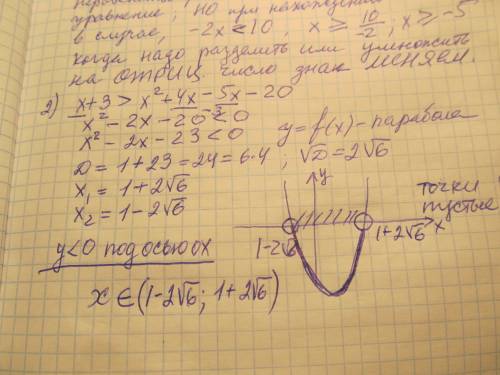 уравнение; но при нахождении
в случае, -2x ≤ 10, x ≥ 10/-2; x ≥ -5
когда надо разделить или умножить
на ОТРИЦ. число знак МЕНЯЕМ.
2) x+3 > x² + 4x - 5x - 20
x² - 2x - 20 - 3 < 0
x² - 2x - 23 < 0
y = f(x) - парабола
D = 1 + 23 = 24 = 6·4 ; √D = 2√6
x₁ = 1 + 2√6
x₂ = 1 - 2√6
y
точки
пустые
x
1-2√6
1+2√6
y<0 под осью ох
x ∈ (1-2√6; 1+2√6)